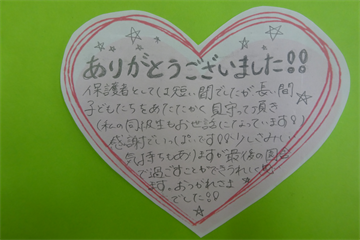 ありがとうございました!!
保護者としては短い間でしたが長い間
子どもたちをあたたかく見守って頂き
(私の同級生もお世話になっています!)
感謝でいっぱいです!!少しさみしい
気持ちもありますが最後の園
で過ごすことができうれしく思
います。おつかれさま
でした!!